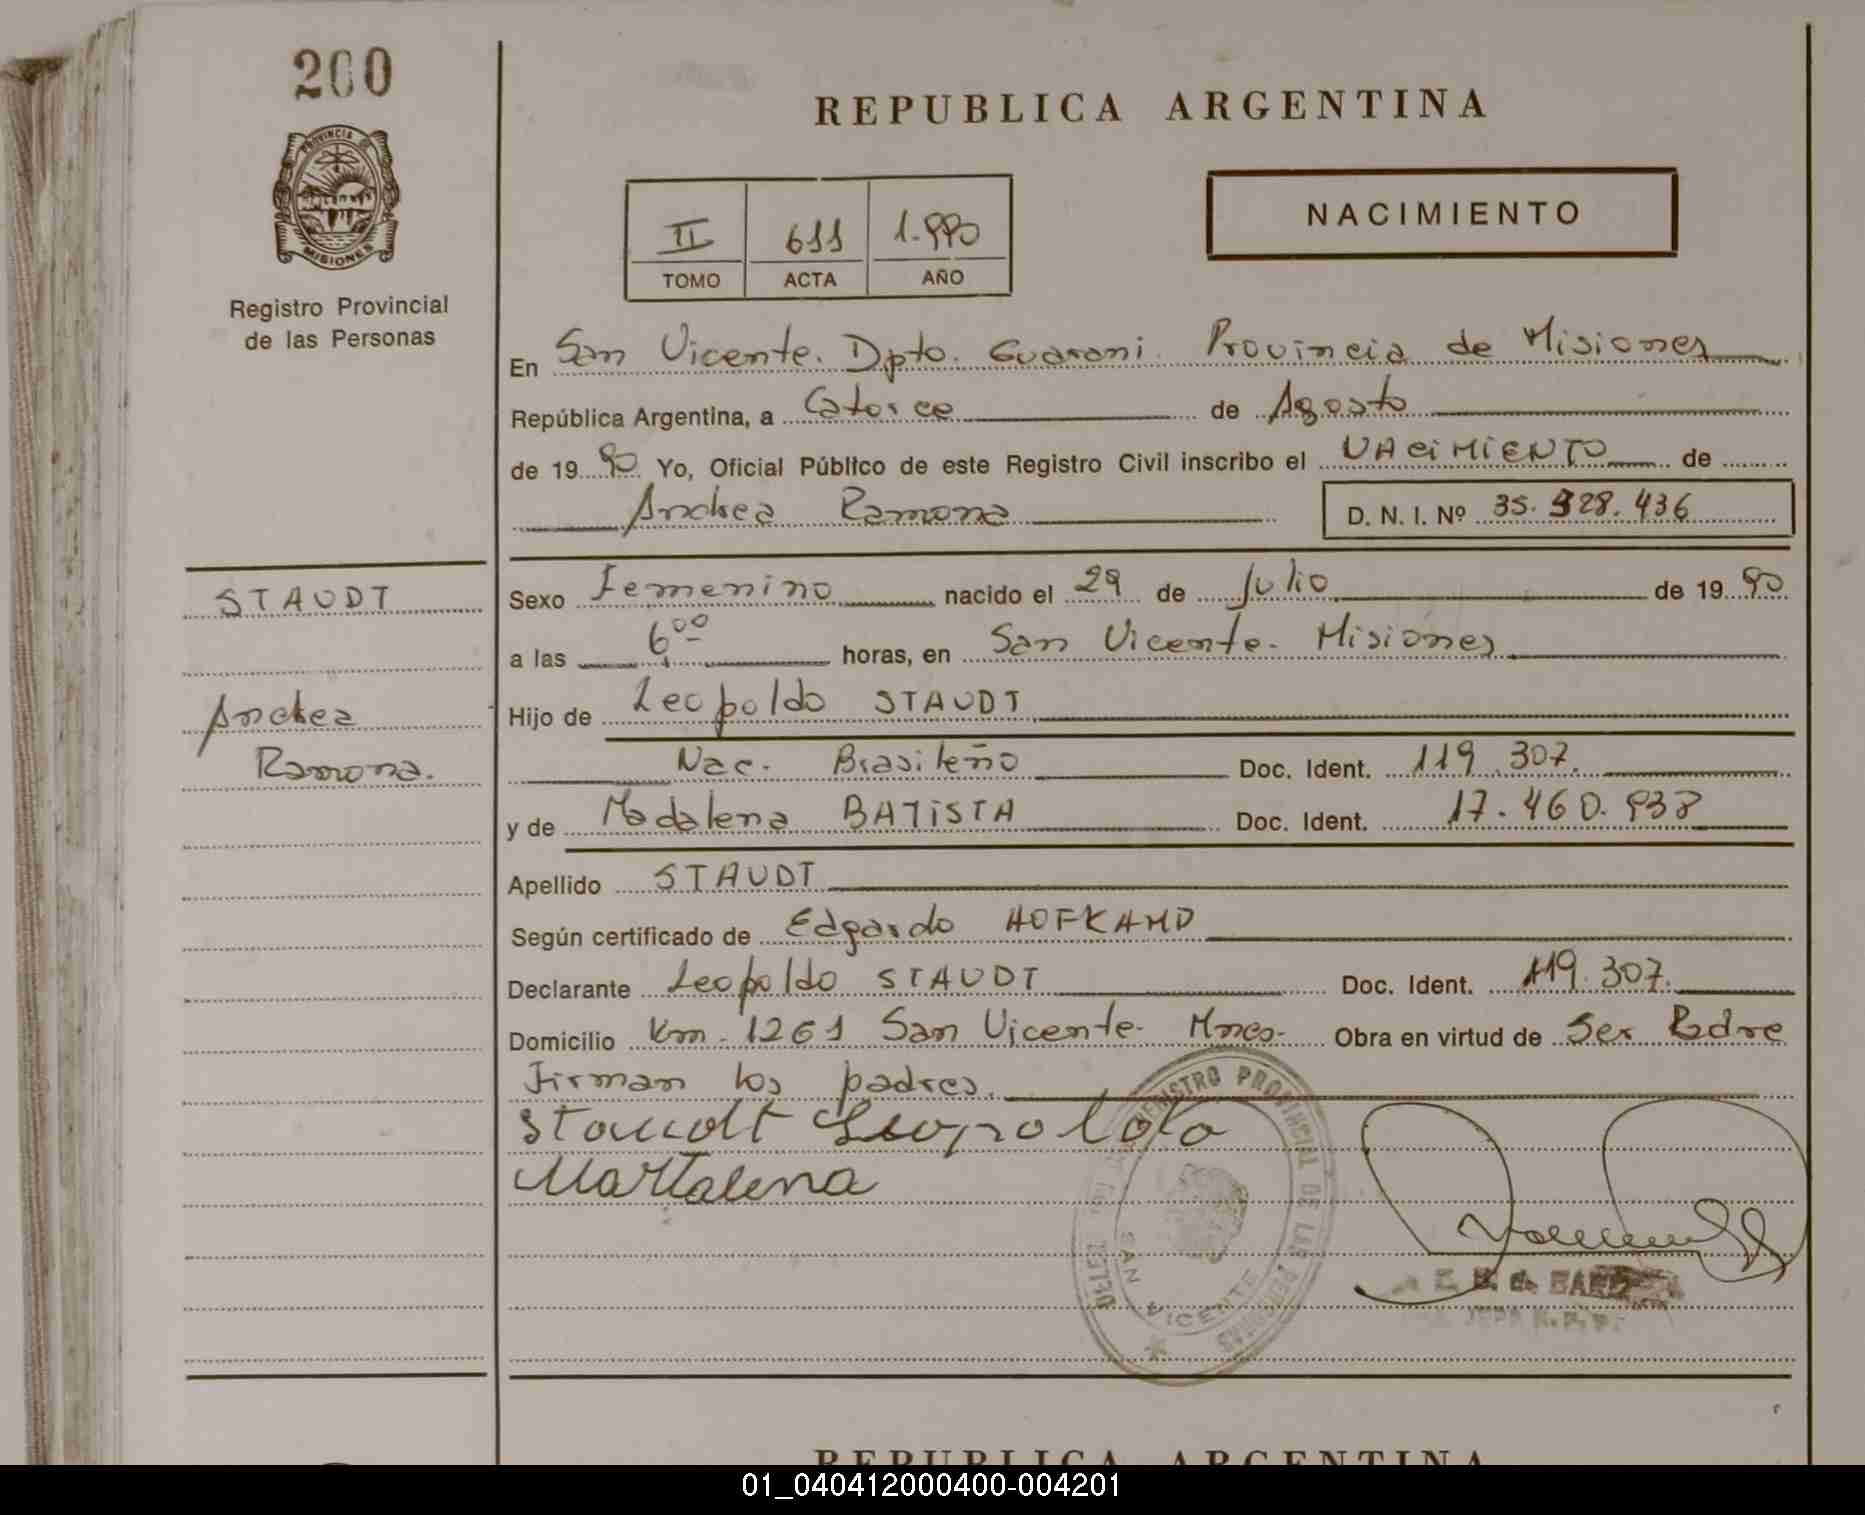 200
PROVINCIA DE
MISIONES
Registro Provincial
de las Personas
REPUBLICA ARGENTINA
II 611 1.990
TOMO ACTA AÑO
NACIMIENTO
En San Vicente. Dpto. Guarani. Provincia de Misiones
República Argentina, a Catorce de Agosto
de 19 90 Yo, Oficial Público de este Registro Civil inscribo el NACIMIENTO de
Andrea Ramona D. N. I. Nº 35.328.436
STAUDT
Andrea
Ramona.
Sexo Femenino nacido el 29 de Julio de 19 90
a las 6 00 horas, en San Vicente - Misiones
Hijo de Leopoldo STAUDT
Nac. Brasileño Doc. Ident. 119.307.
y de Madalena BATISTA Doc. Ident. 17.460.938
Apellido STAUDT
Según certificado de Edgardo HOFKAMP
Declarante Leopoldo STAUDT Doc. Ident. 119.307.
Domicilio Km. 1261 San Vicente - Mnes. Obra en virtud de Ser Padre
Firman los padres.
Staudt Leopoldo
Martalena
REGISTRO PROVINCIAL DE LAS PERSONAS
SAN VICENTE
REPUBLICA ARGENTINA
01_040412000400-004201